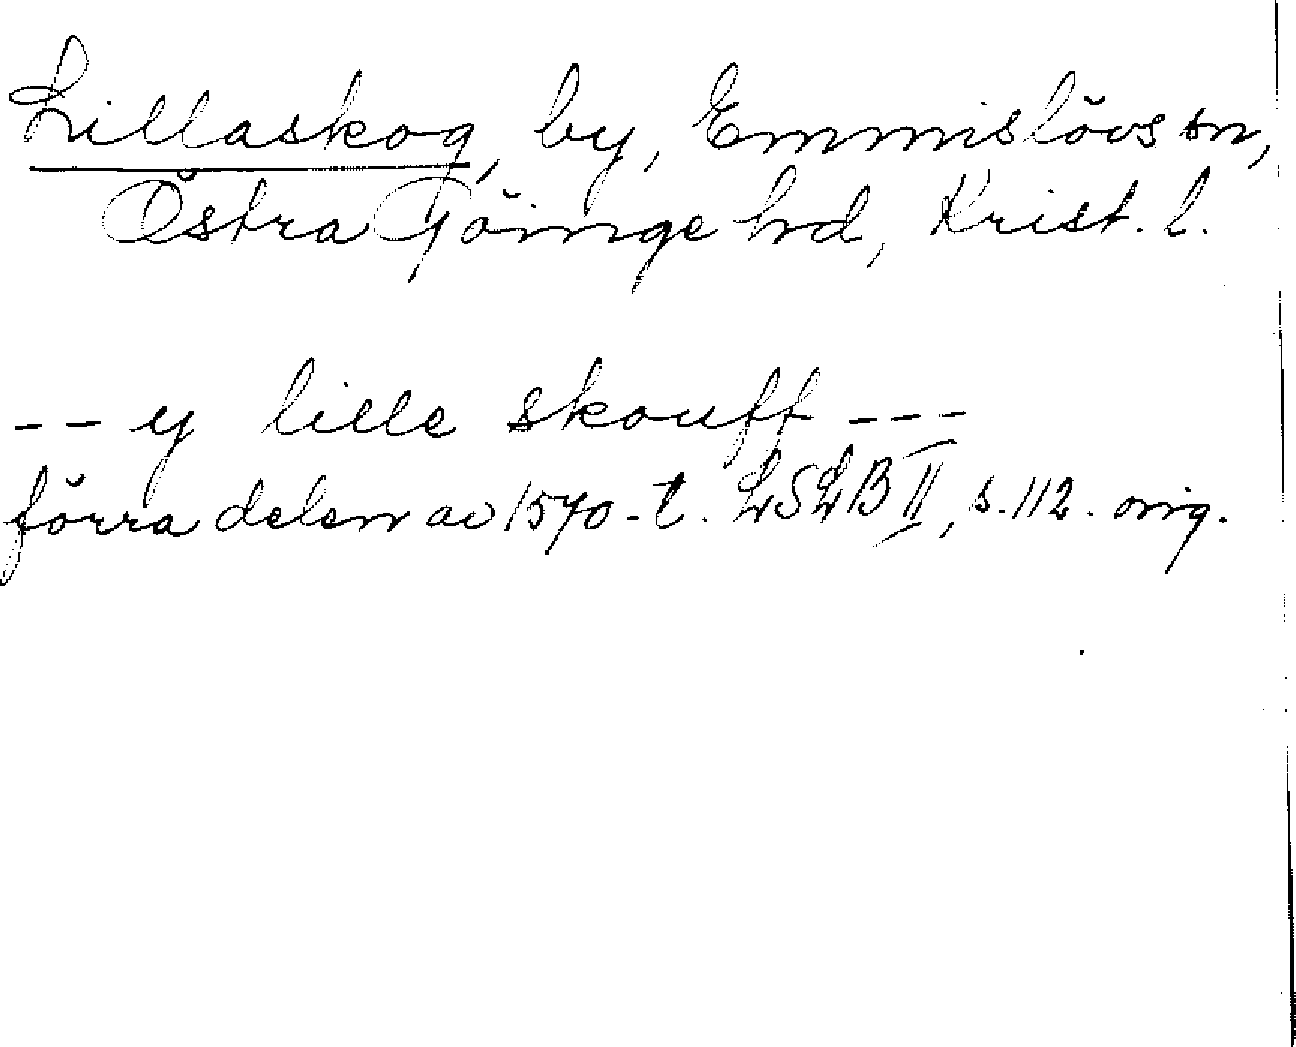 Lillaskog, by, Emmislövs sn,
Östra Göinge hrd, Krist. l.
-- y lille skouff ---
förra delen av 1570-t. LSLB II, s. 112. orig.